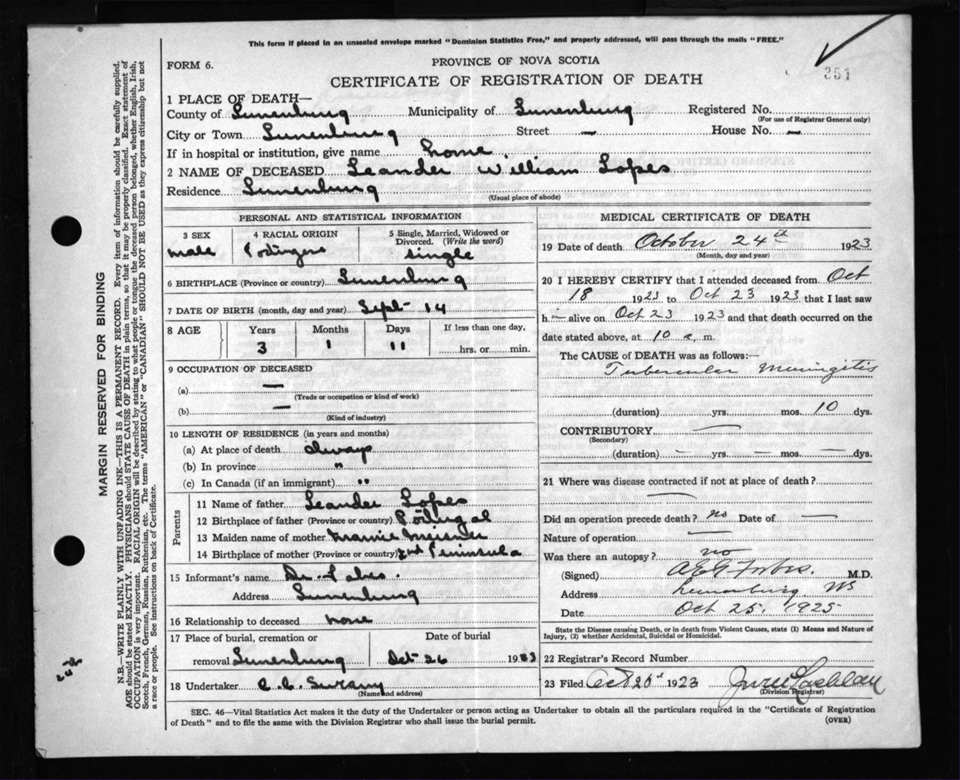 This form if placed in an unsealed envelope marked "Dominion Statistics Free," and properly addressed, will pass through the mails "FREE."
351
FORM 6.
PROVINCE OF NOVA SCOTIA
CERTIFICATE OF REGISTRATION OF DEATH
1 PLACE OF DEATH—
County of Lunenburg Municipality of Lunenburg Registered No.
(For use of Registrar General only)
City or Town Lunenburg Street — House No. —
If in hospital or institution, give name home
2 NAME OF DECEASED Leander William Lopes
Residence Lunenburg
(Usual place of abode)
PERSONAL AND STATISTICAL INFORMATION
3 SEX
male
4 RACIAL ORIGIN
5 Single, Married, Widowed or Divorced. (Write the word)
single
6 BIRTHPLACE (Province or country) Lunenburg
7 DATE OF BIRTH (month, day and year) Sept 14
8 AGE Years Months Days If less than one day,
3 1 11 hrs. or min.
9 OCCUPATION OF DECEASED
(a) —
(Trade or occupation or kind of work)
(b) —
(Kind of industry)
10 LENGTH OF RESIDENCE (in years and months)
(a) At place of death always
(b) In province "
(c) In Canada (if an immigrant) "
Parents
11 Name of father Leander Lopes
12 Birthplace of father (Province or country)
13 Maiden name of mother Meisner
14 Birthplace of mother (Province or country) 2nd Peninsula
15 Informant's name Dr.
Address Lunenburg
16 Relationship to deceased none
17 Place of burial, cremation or Date of burial
removal Lunenburg Oct 26 1923
18 Undertaker C. C.
(Name and address)
MEDICAL CERTIFICATE OF DEATH
19 Date of death October 24th 1923
(Month, day and year)
20 I HEREBY CERTIFY that I attended deceased from Oct
18 1923 to Oct 23 1923 that I last saw
h — alive on Oct 23 1923 and that death occurred on the
date stated above, at 10 a. m.
The CAUSE of DEATH was as follows:—
Tubercular Meningitis
(duration) yrs. mos. 10 dys.
CONTRIBUTORY —
(Secondary)
(duration) — yrs. — mos. — dys.
21 Where was disease contracted if not at place of death?
—
Did an operation precede death? no Date of —
Nature of operation —
Was there an autopsy? no
(Signed) Forbes. M.D.
Address Lunenburg NS
Date Oct 25. 1925
State the Disease Causing Death, or in death from Violent Causes, state (1) Means and Nature of
Injury, (2) whether Accidental, Suicidal or Homicidal.
22 Registrar's Record Number
23 Filed Oct 26 1923
(Division Registrar)
SEC. 46—Vital Statistics Act makes it the duty of the Undertaker or person acting as Undertaker to obtain all the particulars required in the "Certificate of Registration
of Death" and to file the same with the Division Registrar who shall issue the burial permit. (OVER)
MARGIN RESERVED FOR BINDING
N.B.—WRITE PLAINLY WITH UNFADING INK—THIS IS A PERMANENT RECORD. Every item of information should be carefully supplied.
AGE should be stated EXACTLY. PHYSICIANS should STATE CAUSE OF DEATH in plain terms, so that it may be properly classified. Exact statement of
OCCUPATION is very important. RACIAL ORIGIN will be described by stating to what people or tongue the deceased person belonged, whether English, Irish,
Scotch, French, German, Russian, Ruthenian, etc. The terms "AMERICAN" or "CANADIAN" SHOULD NOT BE USED as they express citizenship but not
a race or people. See instructions on back of Certificate.